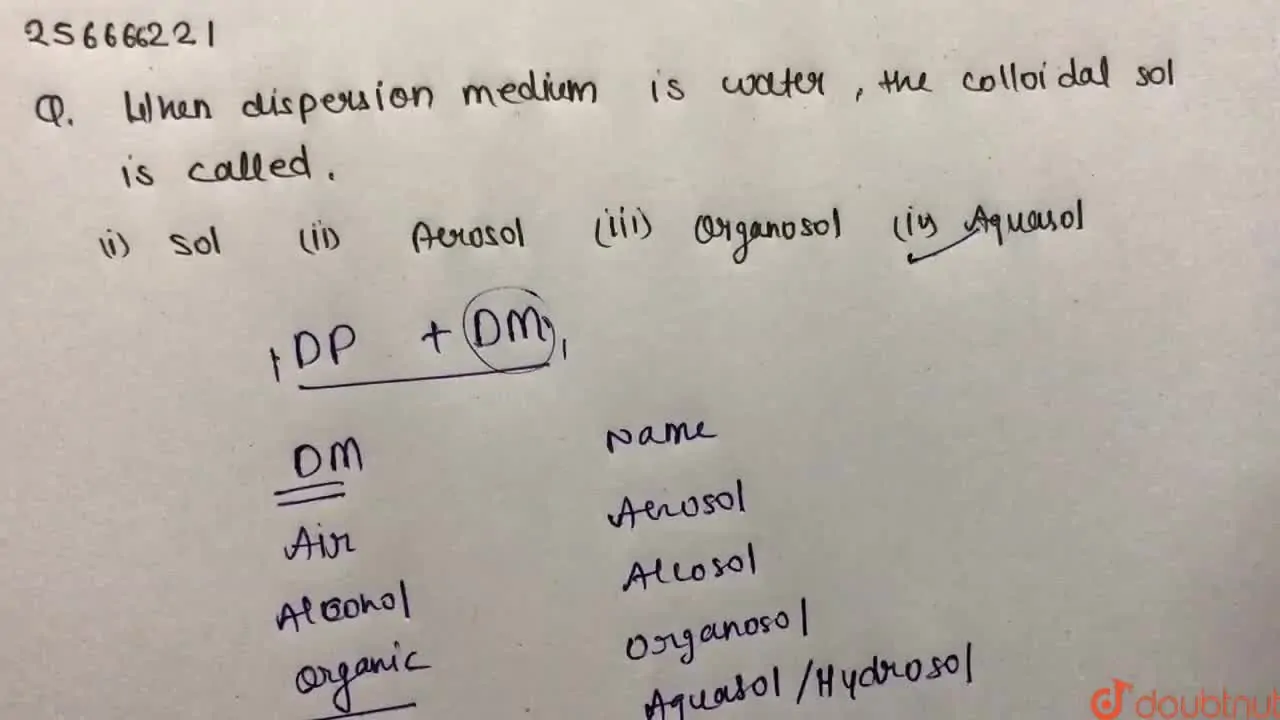 256666221
Q. When dispersion medium is water, the colloidal sol
is called.
(i) sol (ii) Aerosol (iii) Organosol (iv) Aquasol
DP + DM
DM Name
Air Aerosol
Alcohol Alcosol
Organic Organosol
Aquasol/Hydrosol
doubtnut